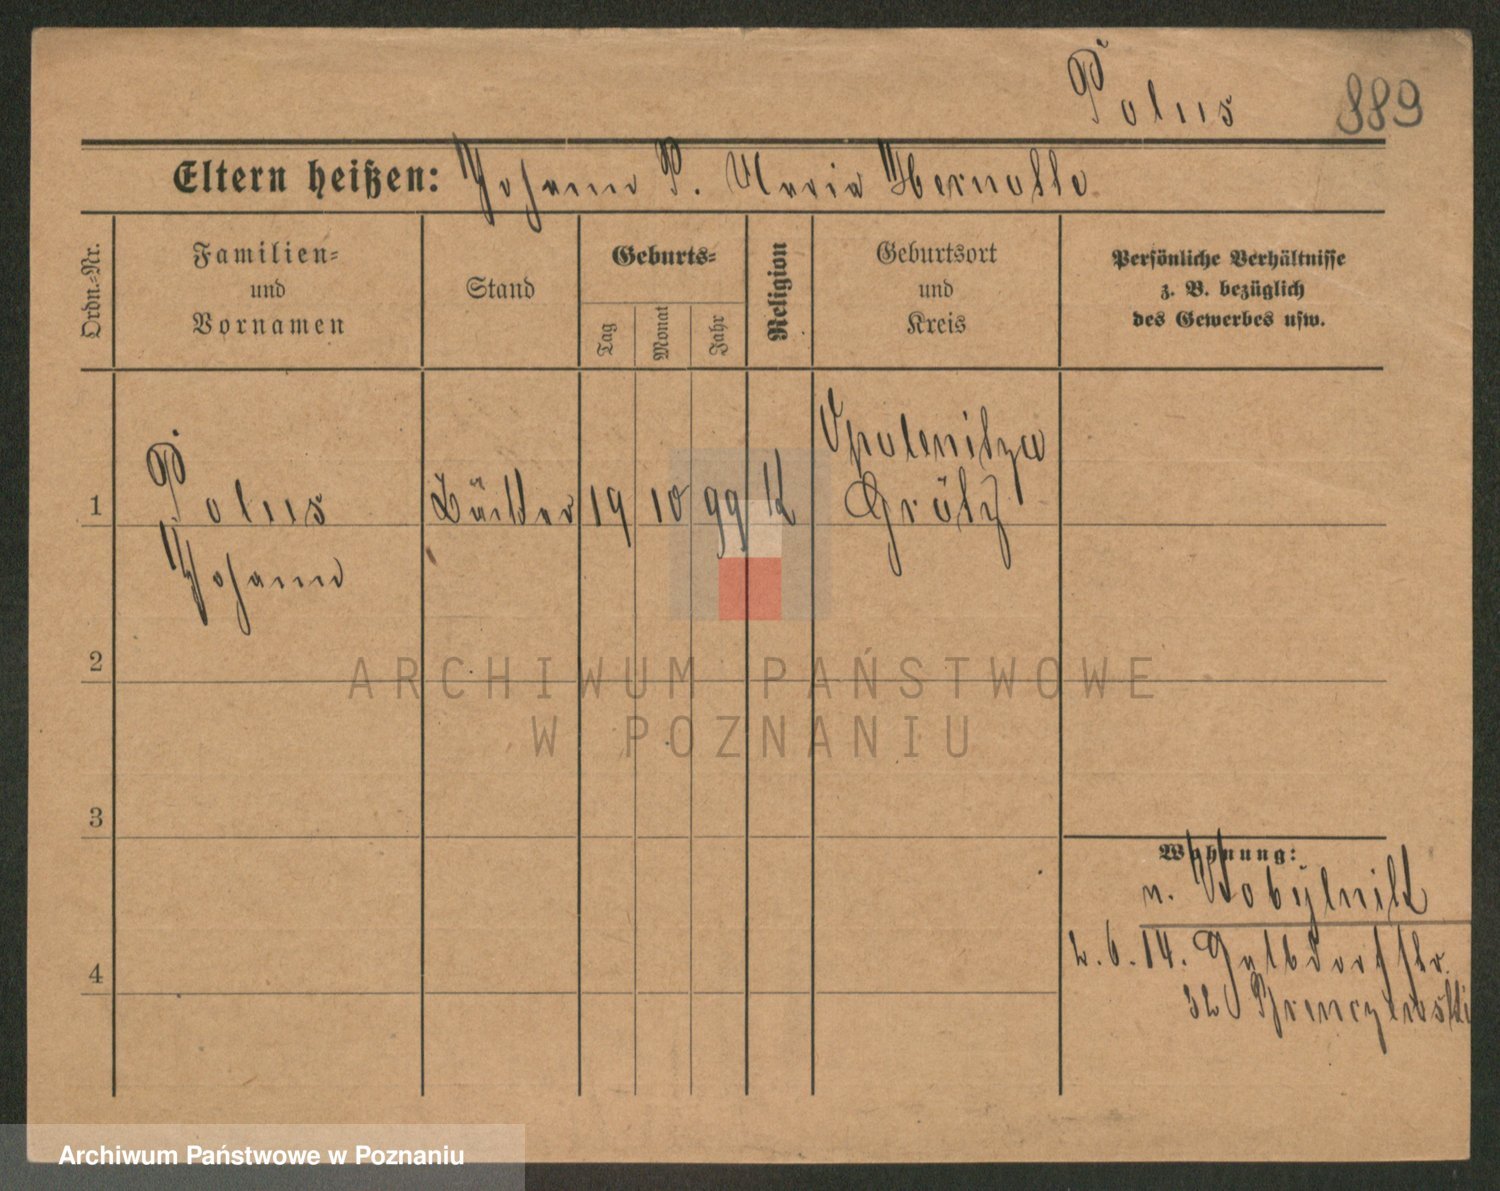 Polus 889
Eltern heißen: Johann P. Maria
Ordn.-Nr.
Familien-
und
Vornamen
Stand
Geburts-
Tag
Monat
Jahr
Religion
Geburtsort
und
Kreis
Persönliche Verhältnisse
z. B. bezüglich
des Gewerbes usw.
Opalenitza
1 Polus Bäcker 19 10 99 k Grätz
Johann
2
ARCHIWUM PAŃSTWOWE
W POZNANIU
3
Wohnung:
n. Kobylnik
4 2.6.14. str.
32
Archiwum Państwowe w Poznaniu